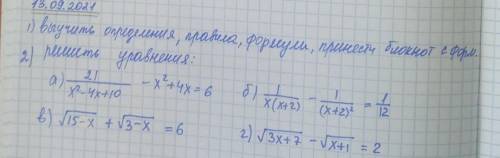 13.09.2021
1) выучить определения, правила, формулы, принести блокнот с форм.
2) решить уравнения:
а) 21/(x²-4x+10) - x²+4x=6 б) 1/(x(x+2)) - 1/(x+2)² = 1/12
в) √15-x + √3-x = 6 г) √3x+7 - √x+1 = 2